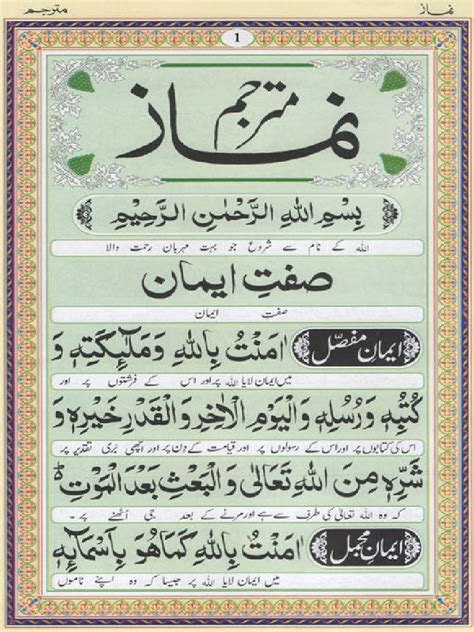 نماز
مترجم
1
نماز مترجم
بِسْمِ اللهِ الرَّحْمٰنِ الرَّحِيْمِ
اللہ کے نام سے شروع جو بہت مہربان رحمت والا
صفتِ ایمان
صفتِ ایمان
ایمان مفصّل اٰمَنْتُ بِاللهِ وَمَلٰٓئِكَتِهٖ وَ
میں ایمان لایا اللہ پر اور اس کے فرشتوں پر اور
كُتُبِهٖ وَرُسُلِهٖ وَالْيَوْمِ الْاٰخِرِ وَالْقَدْرِ خَيْرِهٖ وَ
اس کی کتابوں پر اور اس کے رسولوں پر اور قیامت کے دن پر اور اچھی بُری تقدیر پر
شَرِّهٖ مِنَ اللهِ تَعَالٰى وَالْبَعْثِ بَعْدَ الْمَوْتِ ؕ
کہ وہ اللہ تعالیٰ کی طرف سے ہے اور مرنے کے بعد جی اُٹھنے پر -
ایمانِ مجمل اٰمَنْتُ بِاللهِ كَمَا هُوَ بِاَسْمَآئِهٖ
میں ایمان لایا اللہ پر جیسا کہ وہ اپنے ناموں